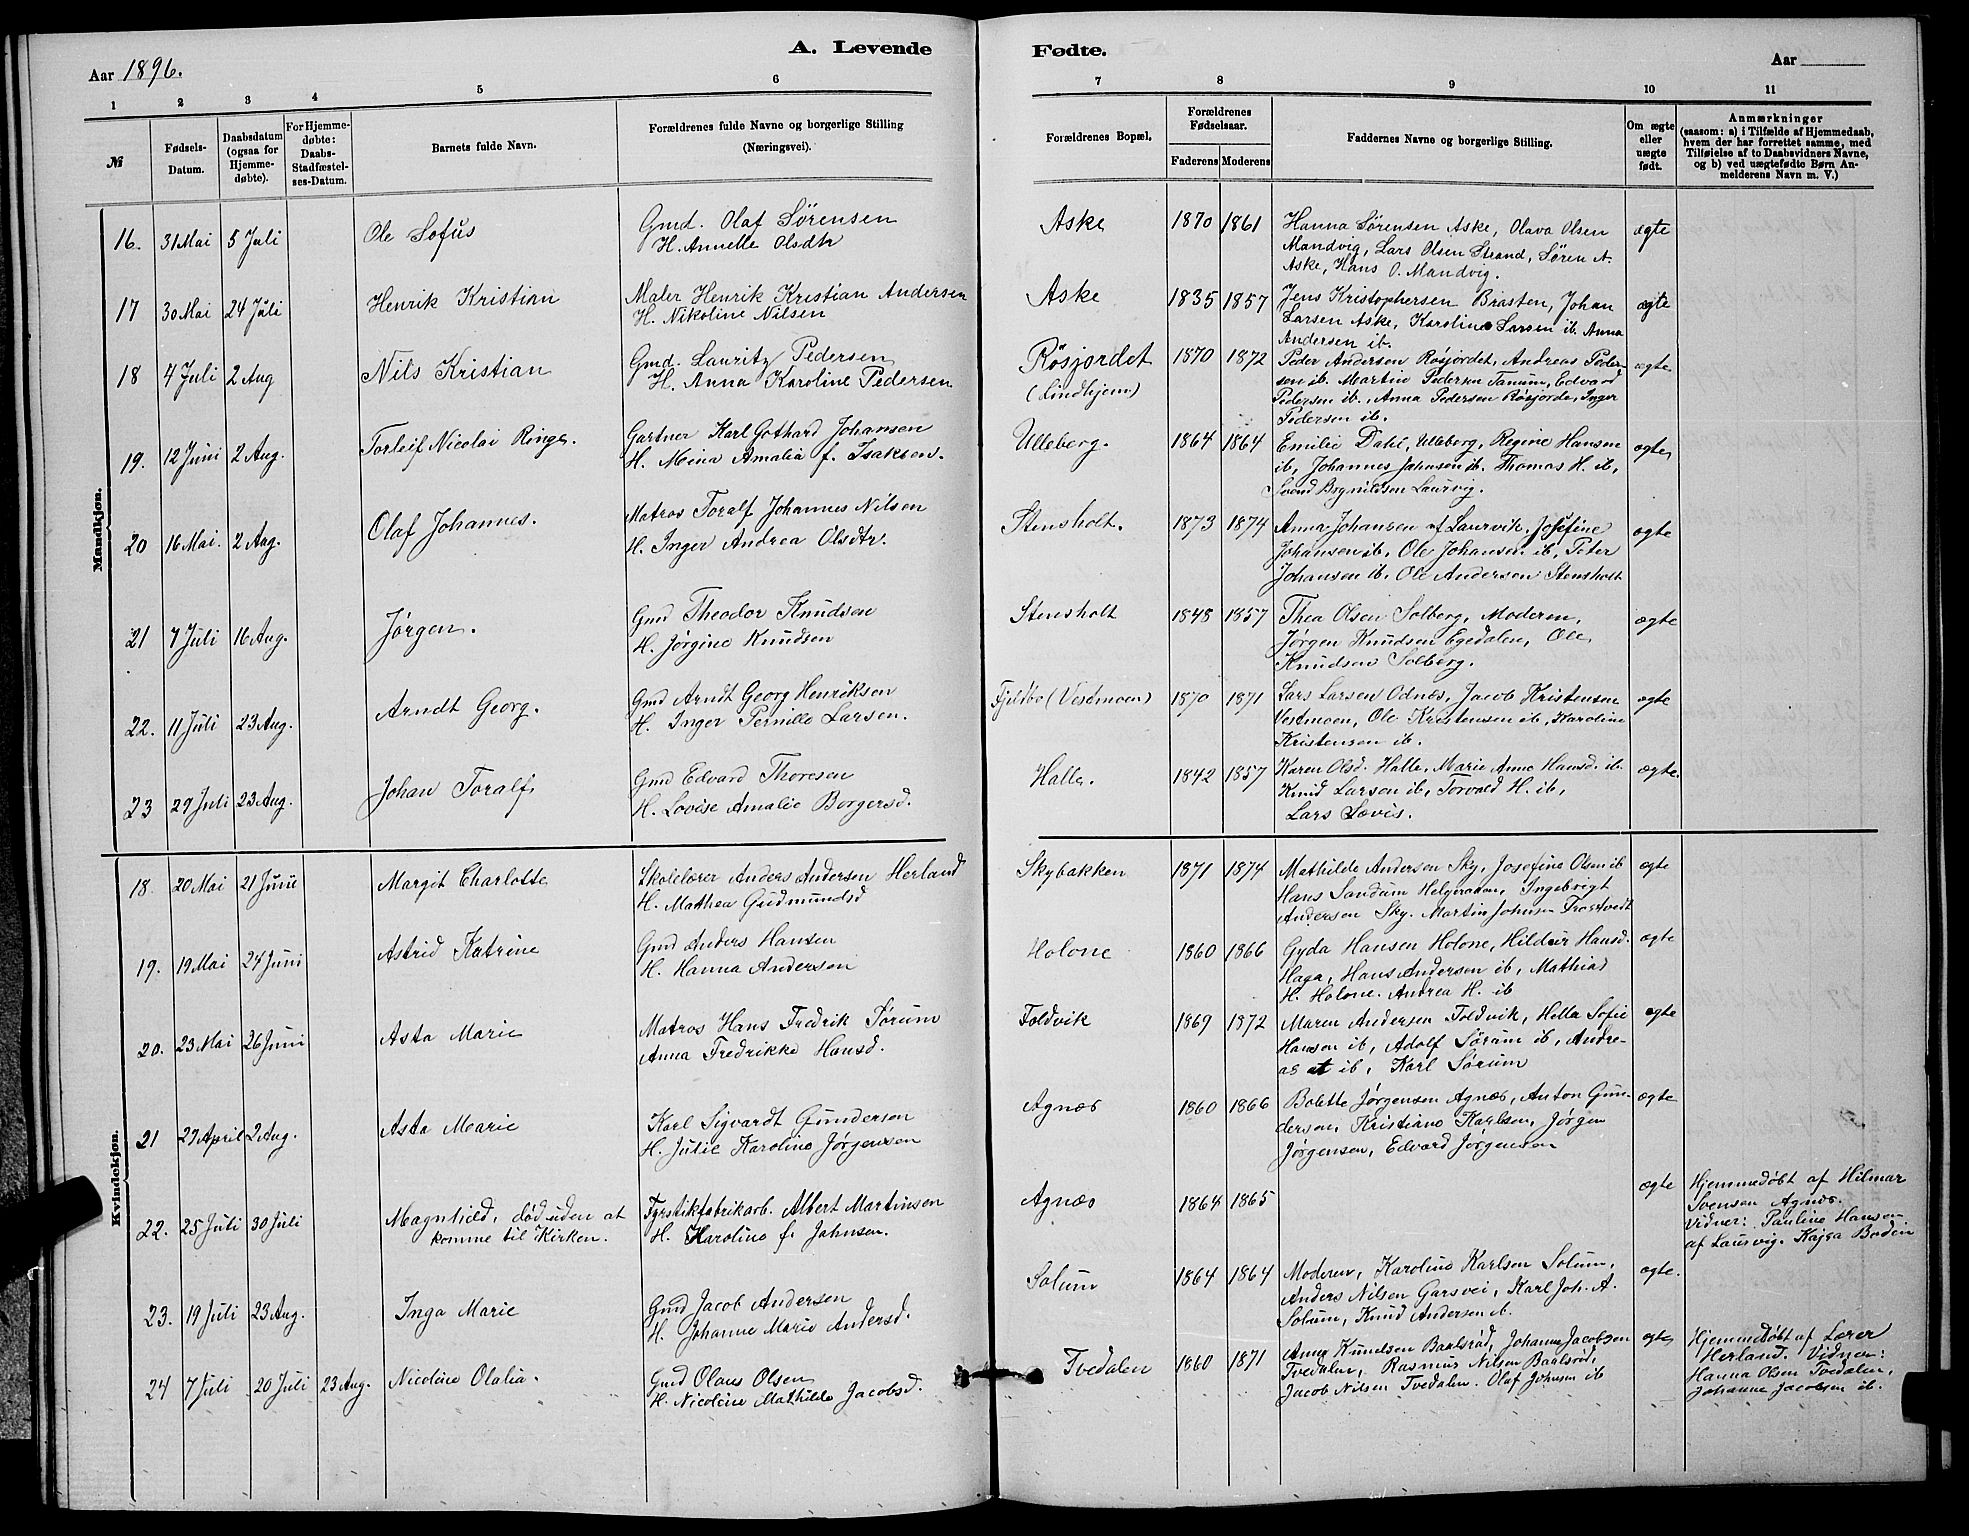 A. Levende Fødte.
Aar 1896. Aar
1 2 3 4 5 6 7 8 9 10 11
№
Fødsels-Datum.
Daabsdatum (ogsaa for Hjemmedøbte).
For Hjemmedøbte: Daabs-Stadfæstelses-Datum.
Barnets fulde Navn.
Forældrenes fulde Navne og borgerlige Stilling (Næringsvei).
Forældrenes Bopæl.
Forældrenes Fødselsaar.
Faderens Moderens
Faddernes Navne og borgerlige Stilling.
Om ægte eller uægte født.
Anmærkninger
(saasom: a) i Tilfælde af Hjemmedaab, hvem der har forrettet samme, med Tilføielse af to Daabsvidners Navne, og b) ved uægtefødte Børn Anmelderens Navn m. V.)
Mandkjøn.
16. 31 Mai 5 Juli Ole Sofus Gmd. Olaf Sørensen Aske 1870 1861 Hanna Sørensen Aske, Olava Olsen ægte
H. Annette Olsdtr Mandvig, Lars Olsen Strand, Søren A.
Aske, Hans O. Mandvig.
17 30 Mai 24 Juli Henrik Kristian Maler Henrik Kristian Andersen Aske 1835 1857 Jens Kristophersen Brasten, Johan ægte
H. Nikoline Nilsen Larsen Aske, Karoline Larsen ib. Anna
Andersen ib.
18 4 Juli 2 Aug Nils Kristian Gmd. Lauritz Pedersen Røsjordet 1870 1872 Peder Andersen Røsjordet, Andreas Peder- ægte
H. Anna Karoline Pedersen (Lindhjem) sen ib. Martin Pedersen Tanum, Edvard
Pedersen ib., Anna Pedersen Røsjorde, Inger
Pedersen ib.
19. 12 Juni 2 Aug. Torleif Nicolai Ringe. Gartner Karl Gothard Johansen Ulleberg. 1864 1864 Emilie Dahl, Ulleberg, Regine Hansen ægte
H. Mina Amalia f. Isaksen. ib, Johannes Johnsen ib. Thomas H. ib,
Svend Laurvig.
20 16 Mai. 2 Aug. Olaf Johannes. Matros Toralf Johannes Nilsen Stensholt. 1873 1874 Anna Johansen af Laurvik, Josefine ægte
H. Inger Andrea Olsdtr. Johansen ib, Ole Johansen ib, Peter
Johansen ib, Ole Andersen Stensholt
21 7 Juli 16 Aug. Jørgen. Gmd Theodor Knudsen Stensholt 1848 1857 Thea Olsen Solberg, Moderen, ægte
H. Jørgine Knudsen Jørgen Knudsen Egedalen, Ole
Knudsen Solberg.
22. 11 Juli 23 Aug. Arndt Georg. Gmd Arndt Georg Henriksen (Vestmoen) 1870 1871 Lars Larsen Odnæs, Jacob Kristensen ægte
H. Inger Pernille Larsen. Vestmoen, Ole Kristensen ib, Karoline
Kristensen ib.
23 29 Juli 23 Aug. Johan Toralf Gmd Edvard Thoresen Halle. 1842 1857 Karen Olsd. Halle, Marie Anne Hansd. ib. ægte.
H. Lovise Amalie Borgersd. Knud Larsen ib, Torvald H. ib,
Lars
Kvindekjøn.
18. 20 Mai 21 Juni Margit Charlotte Skolelærer Anders Andersen Herland Skybakken 1871 1874 Mathilde Andersen Sky, Josefine Olsen ib ægte
H. Mathea Gudmundsd Hans Sandum Helgeroa, Ingebrigt
Andersen Sky. Martin Johnsen
19. 19 Mai 24 Juni Astrid Katrine Gmd Anders Hansen Holone 1860 1866 Gyda Hansen Holone, Hildur Hansd. ægte
H. Hanna Andersen Haga, Hans Andersen ib, Mathias
H. Holone. Andrea H. ib
20. 23 Mai 26 Juni Asta Marie Matros Hans Fredrik Sørum Foldvik 1869 1872 Maren Andersen Foldvik, Hella Sofie ægte
Anna Fredrikke Hansd. Hansen ib, Adolf Sørum ib, Andre-
as ib, Karl Sørum
21 27 April 2 Aug. Asta Marie Karl Sigvardt Gundersen Agnæs 1860 1866 Bolette Jørgensen Agnæs, Anton Gun- ægte
H. Julie Karoline Jørgensen dersen, Kristiane Karlsen, Jørgen
Jørgensen, Edvard Jørgensen
22. 25 Juli 30 Juli Magnhild, død uden at Fyrstikfabrikarb. Albert Martinsen Agnæs 1864 1865 ægte Hjemmedøbt af Hilmar
komme til Kirken. H. Karoline f. Johnsen. Svensen Agnæs.
Vidner: Pauline Hansen
af Laurvig. Kajsa Bodén
23. 19 Juli 23 Aug. Inga Marie Gmd Jacob Andersen Solum 1864 1864 Moderen, Karoline Karlsen Solum, ægte.
H. Johanne Marie Andersd. Anders Nilsen Garsvei, Karl Joh. A.
Solum, Knud Andersen ib.
24 7 Juli 20 Juli 23 Aug. Nicoline Olalia. Gmd Olaus Olsen Tvedalen 1860 1871 Anne Knudsen Baalsrød, Johanne Jacobsen ægte Hjemmedøbt af Lærer
H. Nicoline Mathilde Jacobsd. Tvedalen, Rasmus Nilsen Baalsrød, Herland. Vidner:
Jacob Nilsen Tvedalen. Olaf Johnsen ib Hanna Olsen Tvedalen,
Johanne Jacobsen ib.